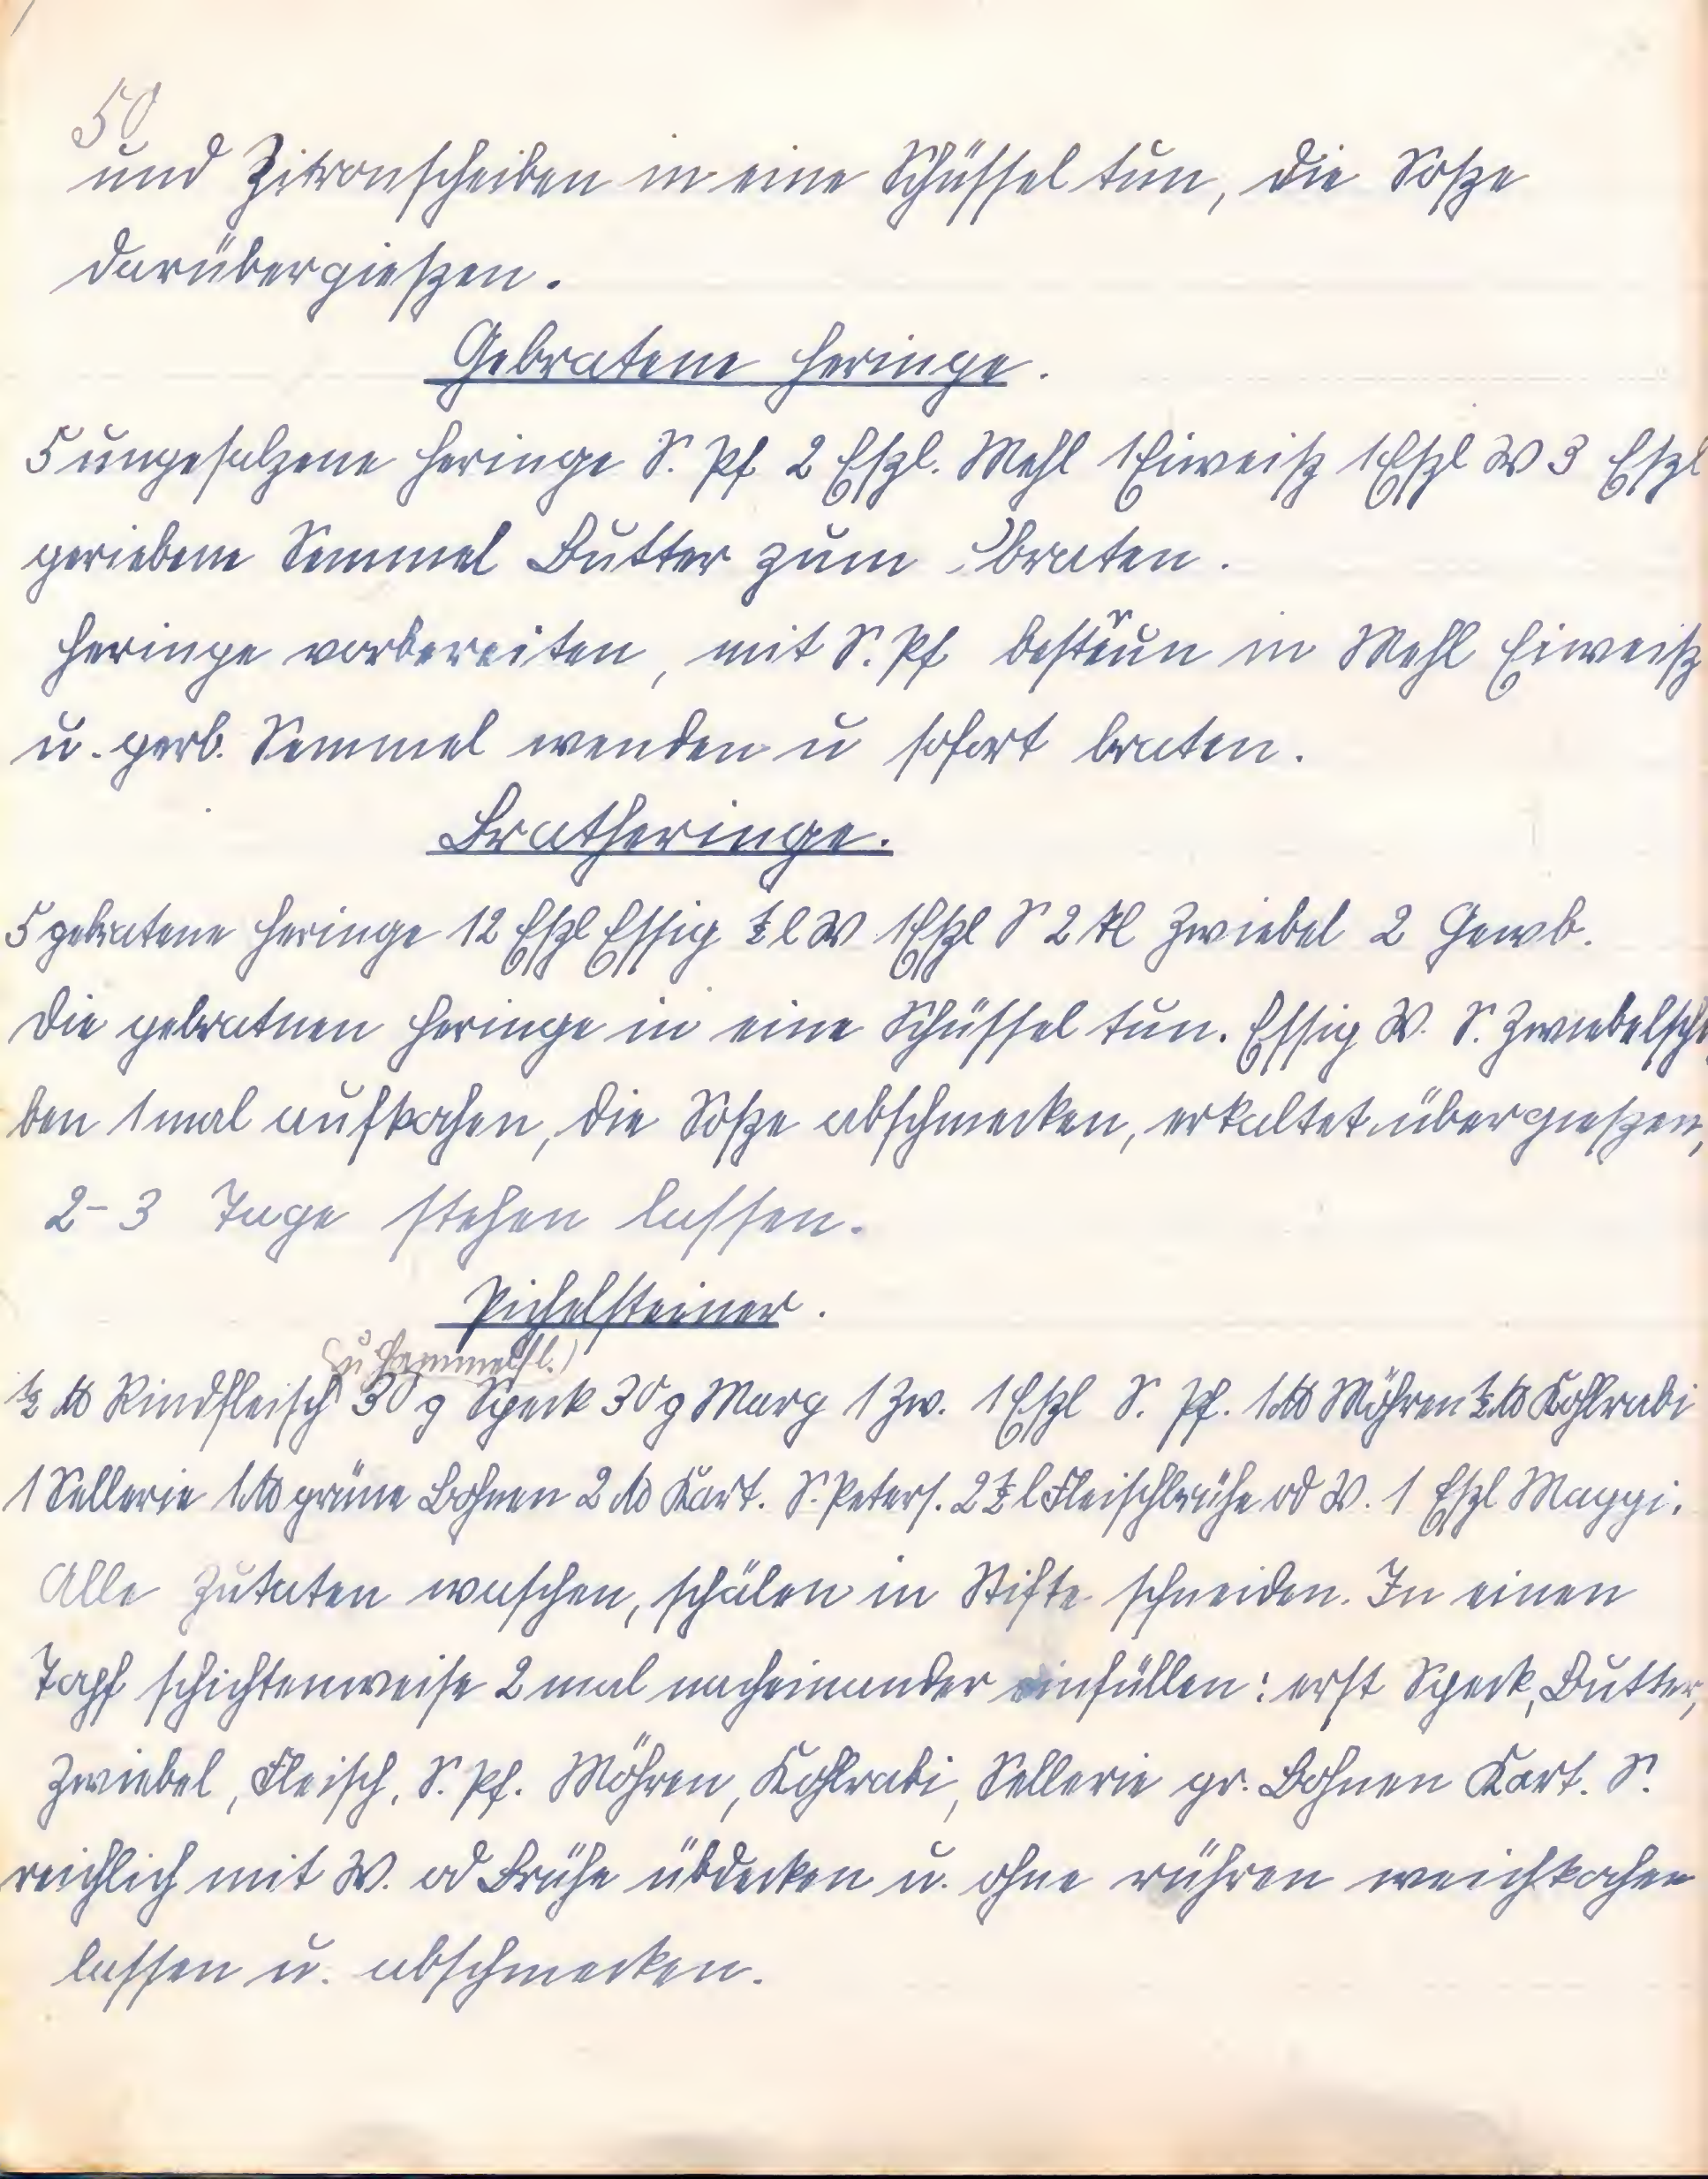 50
und Zitronscheiben in eine Schüssel tun, die Soße
darübergießen.
Gebratene Heringe.
5 ungesalzene Heringe S. Pf 2 Eßl. Mehl 1 Eiweiß 1 Eßl W 3 Eßl
geriebene Semmel Butter zum braten.
Heringe vorbereiten, mit S. Pf bestreun in Mehl Eiweiß
u. gerb. Semmel wenden u sofort braten.
Bratheringe.
5 gebratene Heringe 12 Eßl Essig ½ l W 1 Eßl S 2 kl Zwiebel 2 Gewb.
Die gebratnen Heringe in eine Schüssel tun. Essig W. S. Zwiebelschei
ben 1 mal aufkochen, die Soße abschmecken, erkaltet übergießen,
2-3 Tage stehen lassen.
Pichelsteiner.
(u Hammelfl.)
½ ℔ Rindfleisch 30 g Speck 30 g Marg 1 Zw. 1 Eßl S. Pf. 1 ℔ Möhren ½ ℔ Kohlrabi
1 Sellerie 1 ℔ grüne Bohnen 2 ℔ Kart. S. Peters. 2 ½ l Fleischbrühe od W. 1 Eßl Maggi.
Alle Zutaten waschen, schälen in Stifte schneiden. In einen
Topf schichtenweise 2 mal nacheinander einfüllen: erst Speck, Butter,
Zwiebel, Fleisch, S. Pf. Möhren, Kohlrabi, Sellerie gr. Bohnen Kart. S.
reichlich mit W. od Brühe übdecken u. ohne rühren weichkochen
lassen u. abschmecken.